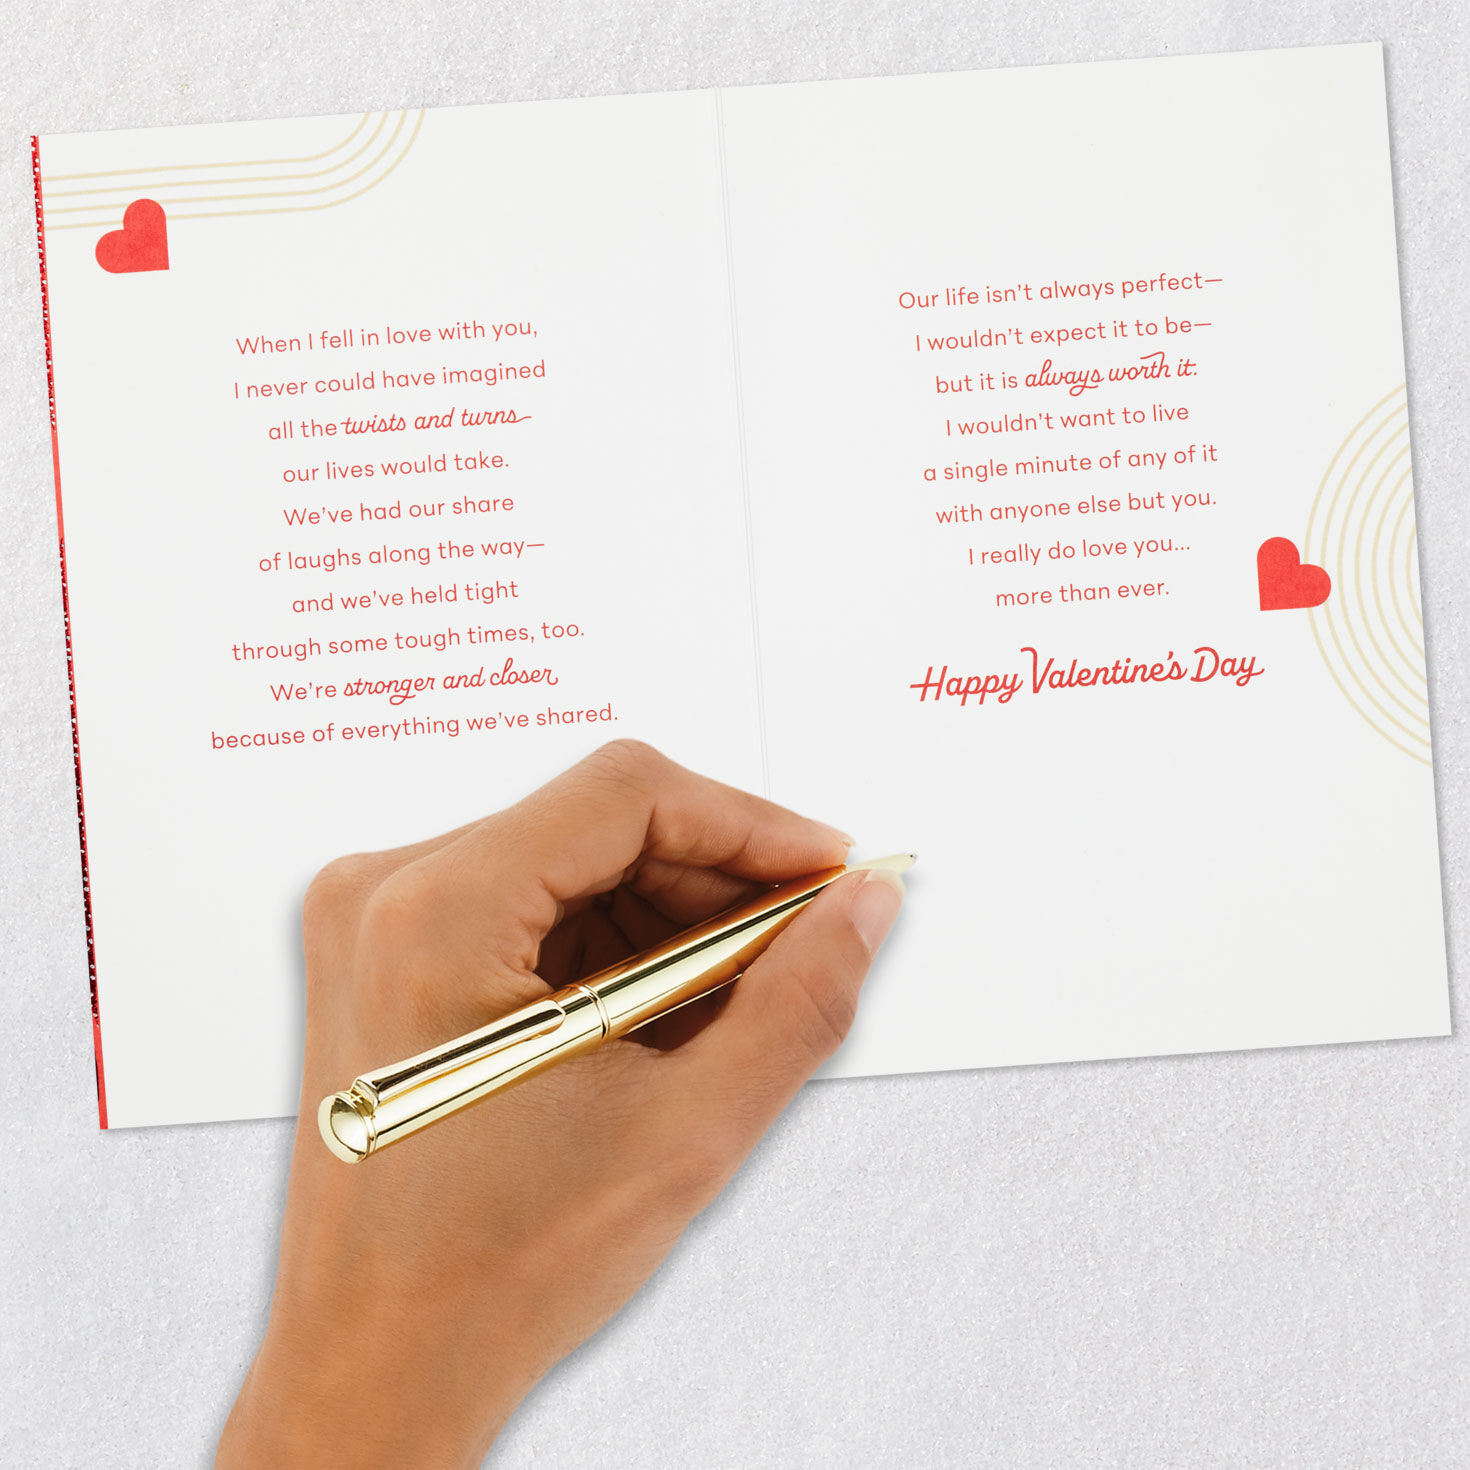 When I fell in love with you,
I never could have imagined
all the twists and turns
our lives would take.
We've had our share
of laughs along the way—
and we've held tight
through some tough times, too.
We're stronger and closer
because of everything we've shared.
Our life isn't always perfect—
I wouldn't expect it to be—
but it is always worth it.
I wouldn't want to live
a single minute of any of it
with anyone else but you.
I really do love you...
more than ever.
Happy Valentine's Day